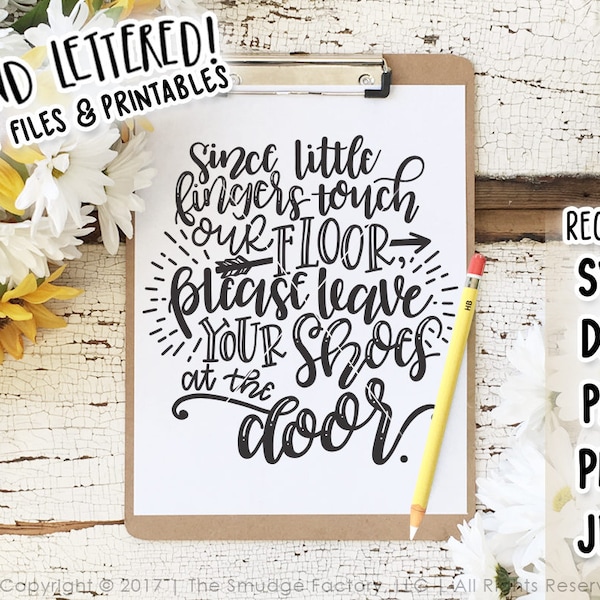 ND LETTERED!
FILES & PRINTABLES
since little
fingers touch
our FLOOR,
please leave
YOUR shoes
at the
door.
HB
REC
S
D
P
P
J
Copyright © 2017 | The Smudge Factory, LLC | All Rights Reserv